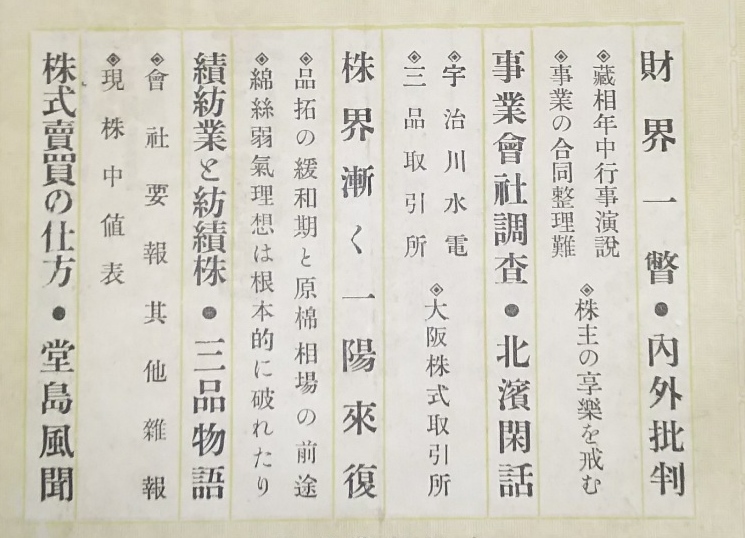 財界一瞥●內外批判
◈藏相年中行事演說
◈事業の合同整理難
◈株主の享樂を戒む
事業會社調査●北濱閑話
◈宇治川水電
◈三品取引所
◈大阪株式取引所
株界漸く一陽來復
◈品拓の緩和期と原棉相場の前途
◈綿絲弱氣理想は根本的に破れたり
績紡業と紡績株●三品物語
◈會社要報其他雜報
◈現株中値表
株式賣買の仕方●堂島風聞